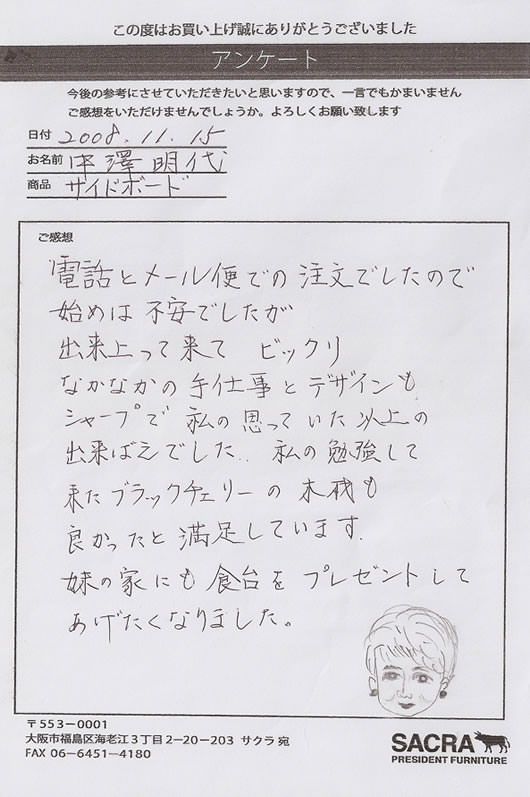 この度はお買い上げ誠にありがとうございました
アンケート
今後の参考にさせていただきたいと思いますので、一言でもかまいません
ご感想をいただけませんでしょうか。よろしくお願い致します
日付 2008.11.15
お名前 中澤明代
商品 サイドボード
ご感想
電話とメール便での注文でしたので
始めは不安でしたが
出来上って来て ビックリ
なかなかの手仕事とデザインも
シャープで私の思っていた以上の
出来ばえでした。私の勉強して
来たブラックチェリーの木材も
良かったと満足しています。
妹の家にも食台をプレゼントして
あげたくなりました。
〒553-0001
大阪市福島区海老江3丁目2-20-203 サクラ宛
FAX 06-6451-4180
SACRA
PRESIDENT FURNITURE